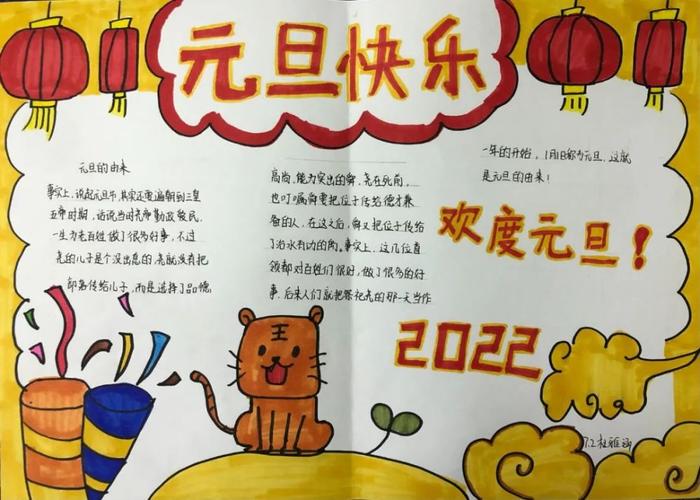 元旦快乐
元旦的由来
事实上，说起元旦节，其实还要追朔到三皇
五帝时期，话说当时尧帝勤政爱民，
一生为老百姓做了很多好事，不过
尧的儿子是个没出息的，尧就没有把
部落传给儿子，而是选择了品德
高尚，能力突出的舜，尧在死前，
也叮嘱舜要把位子传给德才兼
备的人，在这之后，舜又把位子传给
了治水有功的禹。事实上，这几位首
领都对百姓们很好，做了很多的好
事，后来人们就把祭祀尧的那一天当作
一年的开始，1月1日称为元旦，这就
是元旦的由来！
欢度元旦！
2022
王
7.2 杜雅涵